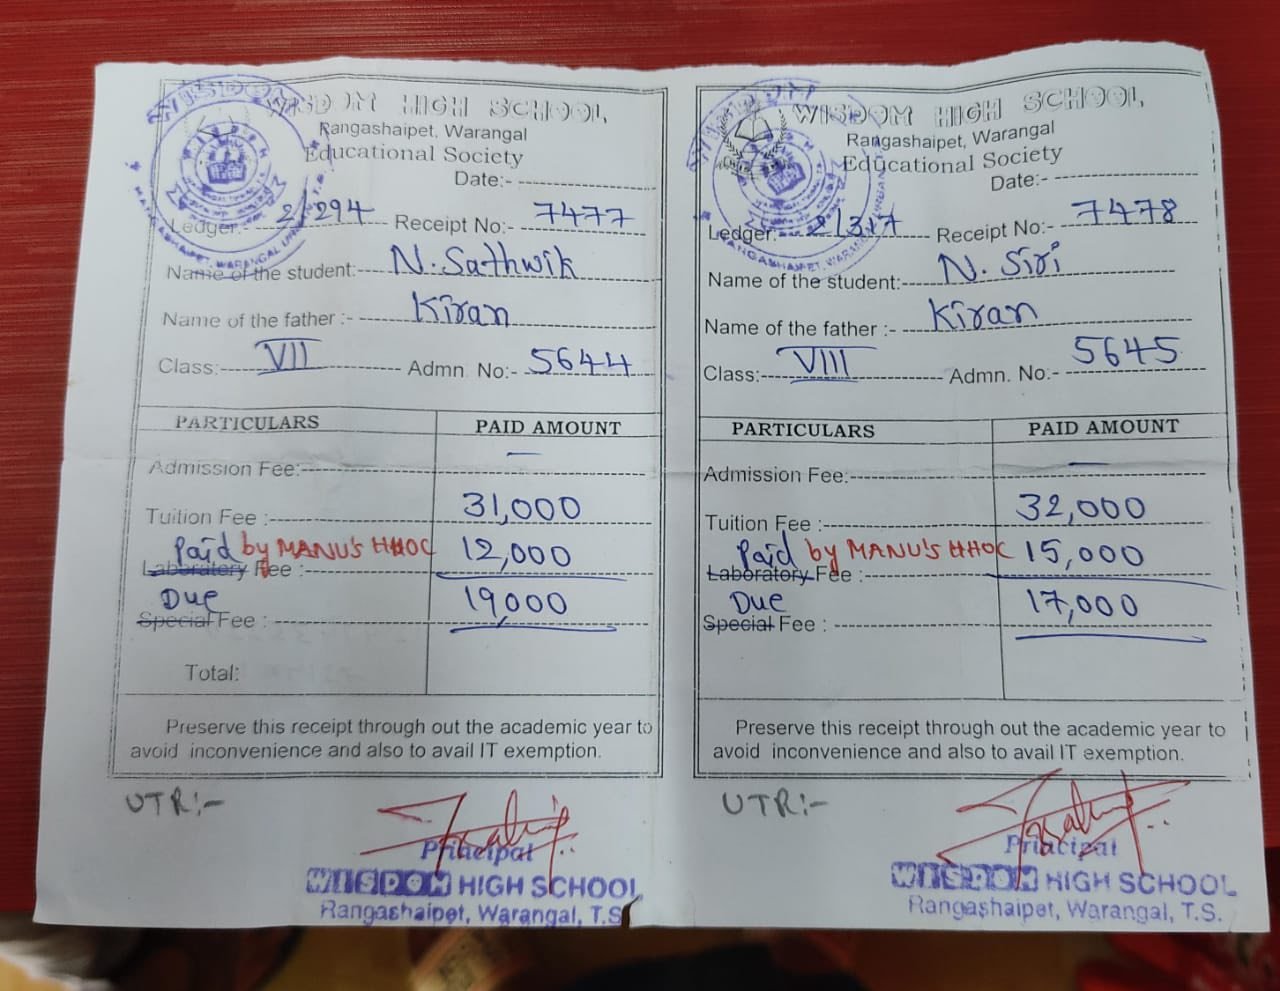 WISDOM HIGH SCHOOL
Rangashaipet, Warangal
Educational Society
Date:-
Ledger:- 2/294 Receipt No:- 7477
Name of the student:- N. Sathwik
Name of the father :- Kiran
Class:- VII Admn. No:- 5644
PARTICULARS PAID AMOUNT
Admission Fee: —
Tuition Fee : 31,000
Paid by MANU'S HHOC 12,000
Laboratory Fee :
Due 19,000
Special Fee :
Total:
Preserve this receipt through out the academic year to
avoid inconvenience and also to avail IT exemption.
UTR:-
Principal
WISDOM HIGH SCHOOL
Rangashaipet, Warangal, T.S
WISDOM HIGH SCHOOL
Rangashaipet, Warangal
Educational Society
Date:-
Ledger:- 2/317 Receipt No:- 7478
Name of the student:- N. Siri
Name of the father :- Kiran
Class:- VIII Admn. No:- 5645
PARTICULARS PAID AMOUNT
Admission Fee: —
Tuition Fee : 32,000
Paid by MANU'S HHOC 15,000
Laboratory Fee :
Due 17,000
Special Fee :
Preserve this receipt through out the academic year to
avoid inconvenience and also to avail IT exemption.
UTR:-
Principal
WISDOM HIGH SCHOOL
Rangashaipet, Warangal, T.S.